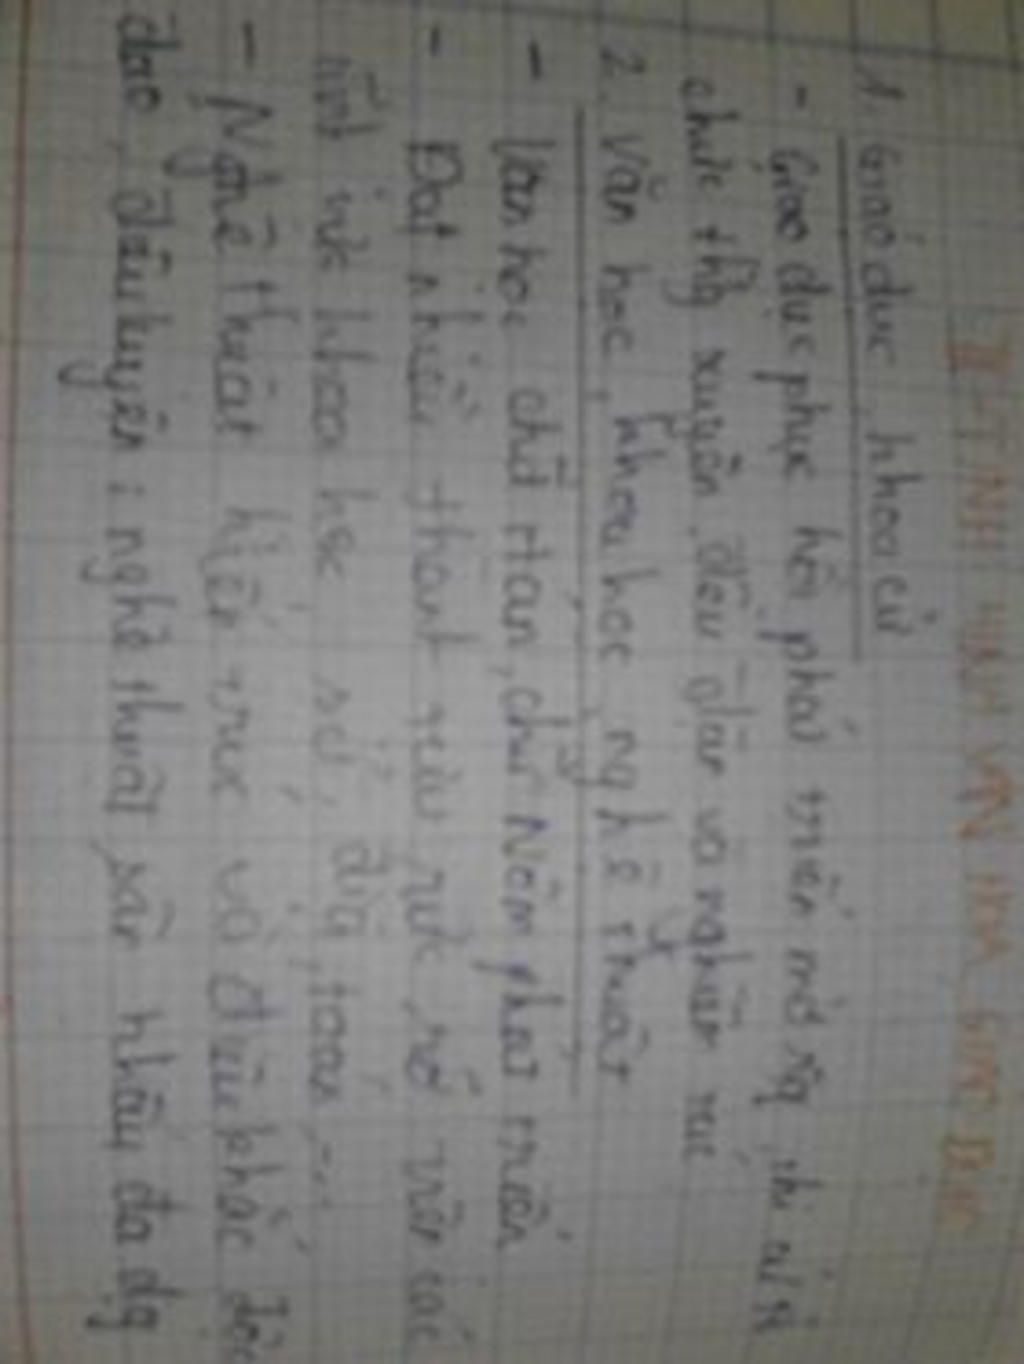 II - TÌNH HÌNH VĂN HÓA GIÁO DỤC
1. Giáo dục, khoa cử
- Giáo dục phục hồi phát triển mở rộg, thi cử tổ
chức thg xuyên, đều đặn và nghiêm túc
2. Văn học, khoa học, nghệ thuật
- Văn học chữ Hán, chữ Nôm phát triển
- Đạt nhiều thành tựu rực rỡ trên các
lĩnh vực khoa học sử, địa, toán ...
- Nghệ thuật kiến trúc và điêu khắc độc
đáo, điêu luyện; nghệ thuật sân khấu đa dg